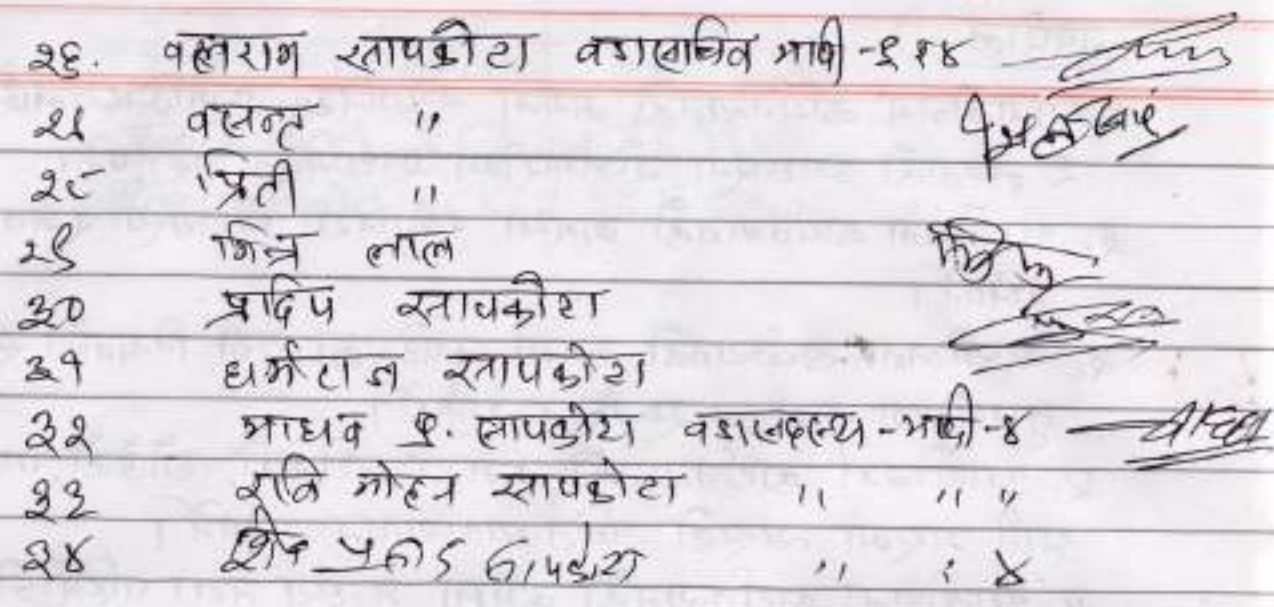 २६. वलराम सापकोटा वडासचिव मादी - १ र ४
२७ वसन्त "
२८ प्रिती "
२९ मित्र लाल
३० प्रदिप सापकोटा
३१ धर्मराज सापकोटा
३२ माधव प्र. सापकोटा वडासदस्य - मादी - ४
३३ रवि मोहन सापकोटा " " "
३४ सापकोटा " : ४